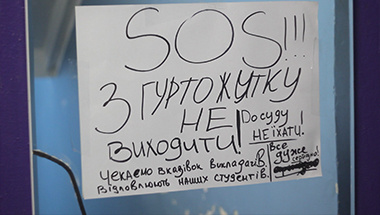 SOS!!!
З ГУРТОЖИТКУ
НЕ
ВИХОДИТИ!
До суду
НЕ ЇХАТИ!
Все
дуже
серйозно!
Чекаємо вкадівок викладачів.
Відловлюють наших студентів.